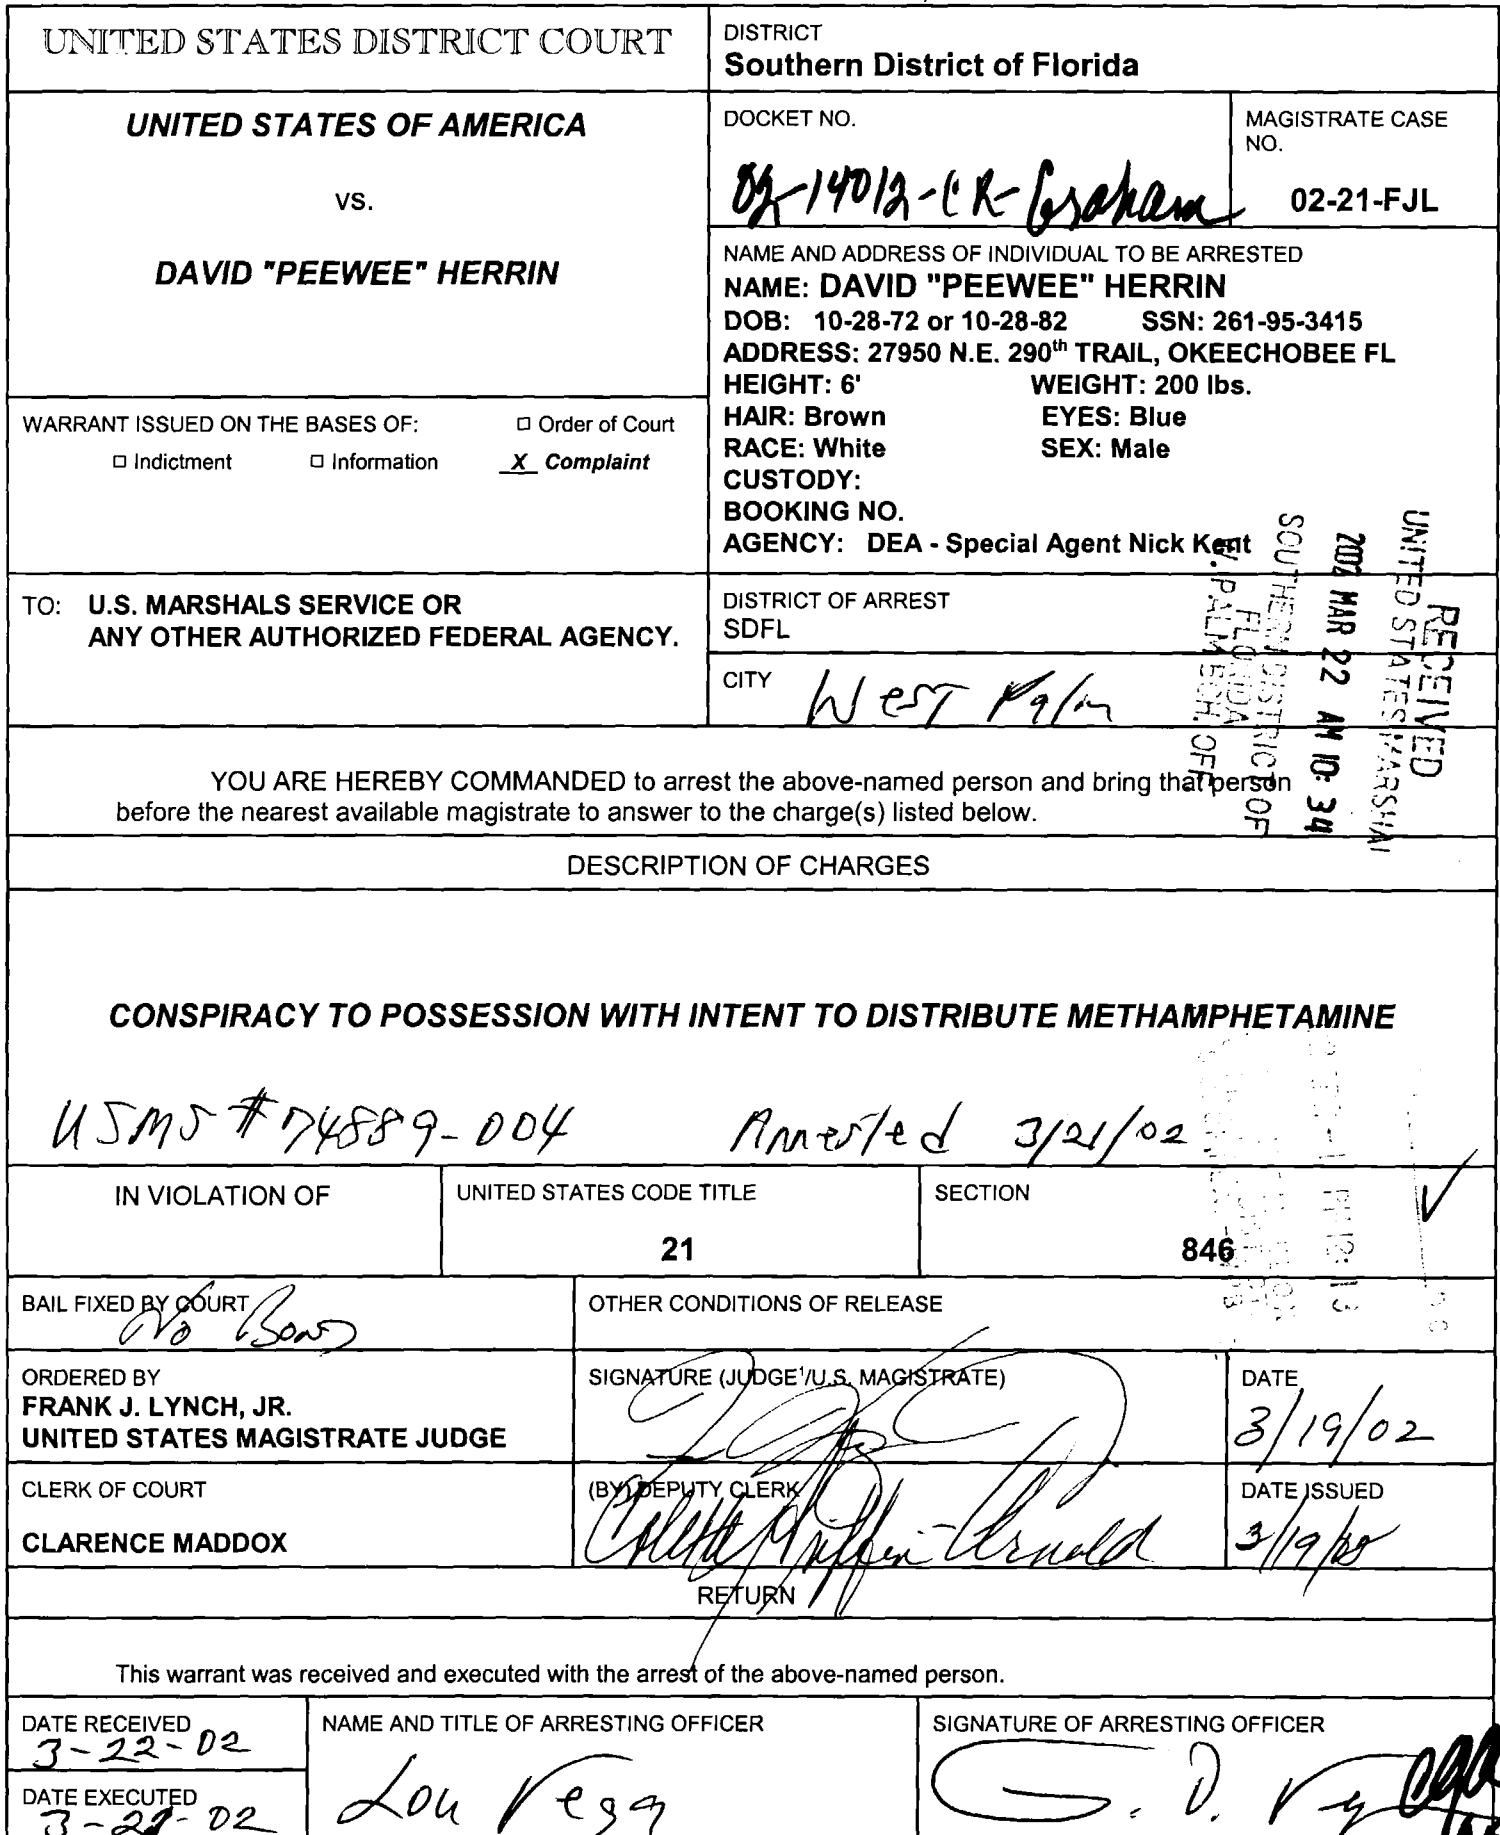 UNITED STATES DISTRICT COURT
DISTRICT
Southern District of Florida
UNITED STATES OF AMERICA
VS.
DAVID "PEEWEE" HERRIN
DOCKET NO.
02-14012-CR-Graham
MAGISTRATE CASE
NO.
02-21-FJL
NAME AND ADDRESS OF INDIVIDUAL TO BE ARRESTED
NAME: DAVID "PEEWEE" HERRIN
DOB: 10-28-72 or 10-28-82 SSN: 261-95-3415
ADDRESS: 27950 N.E. 290th TRAIL, OKEECHOBEE FL
HEIGHT: 6' WEIGHT: 200 lbs.
HAIR: Brown EYES: Blue
RACE: White SEX: Male
CUSTODY:
BOOKING NO.
AGENCY: DEA - Special Agent Nick Kent
WARRANT ISSUED ON THE BASES OF: □ Order of Court
□ Indictment □ Information X Complaint
RECEIVED
UNITED STATES MARSHAL
2002 MAR 22 AM 10:34
SOUTHERN DISTRICT OF
FLORIDA
W. PALM BCH. OFF
TO: U.S. MARSHALS SERVICE OR
ANY OTHER AUTHORIZED FEDERAL AGENCY.
DISTRICT OF ARREST
SDFL
CITY West Palm
YOU ARE HEREBY COMMANDED to arrest the above-named person and bring that person
before the nearest available magistrate to answer to the charge(s) listed below.
DESCRIPTION OF CHARGES
CONSPIRACY TO POSSESSION WITH INTENT TO DISTRIBUTE METHAMPHETAMINE
USMS # 74889-004 Arrested 3/21/02
IN VIOLATION OF
UNITED STATES CODE TITLE
21
SECTION
846
BAIL FIXED BY COURT
No Bond
OTHER CONDITIONS OF RELEASE
ORDERED BY
FRANK J. LYNCH, JR.
UNITED STATES MAGISTRATE JUDGE
SIGNATURE (JUDGE¹/U.S. MAGISTRATE)
DATE
3/19/02
CLERK OF COURT
CLARENCE MADDOX
(BY) DEPUTY CLERK
DATE ISSUED
3/19/02
RETURN
This warrant was received and executed with the arrest of the above-named person.
DATE RECEIVED
3-22-02
NAME AND TITLE OF ARRESTING OFFICER
Lou Vega
SIGNATURE OF ARRESTING OFFICER
DATE EXECUTED